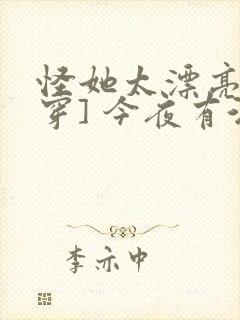 怪她太漂亮
穿]今夜有
李亦中